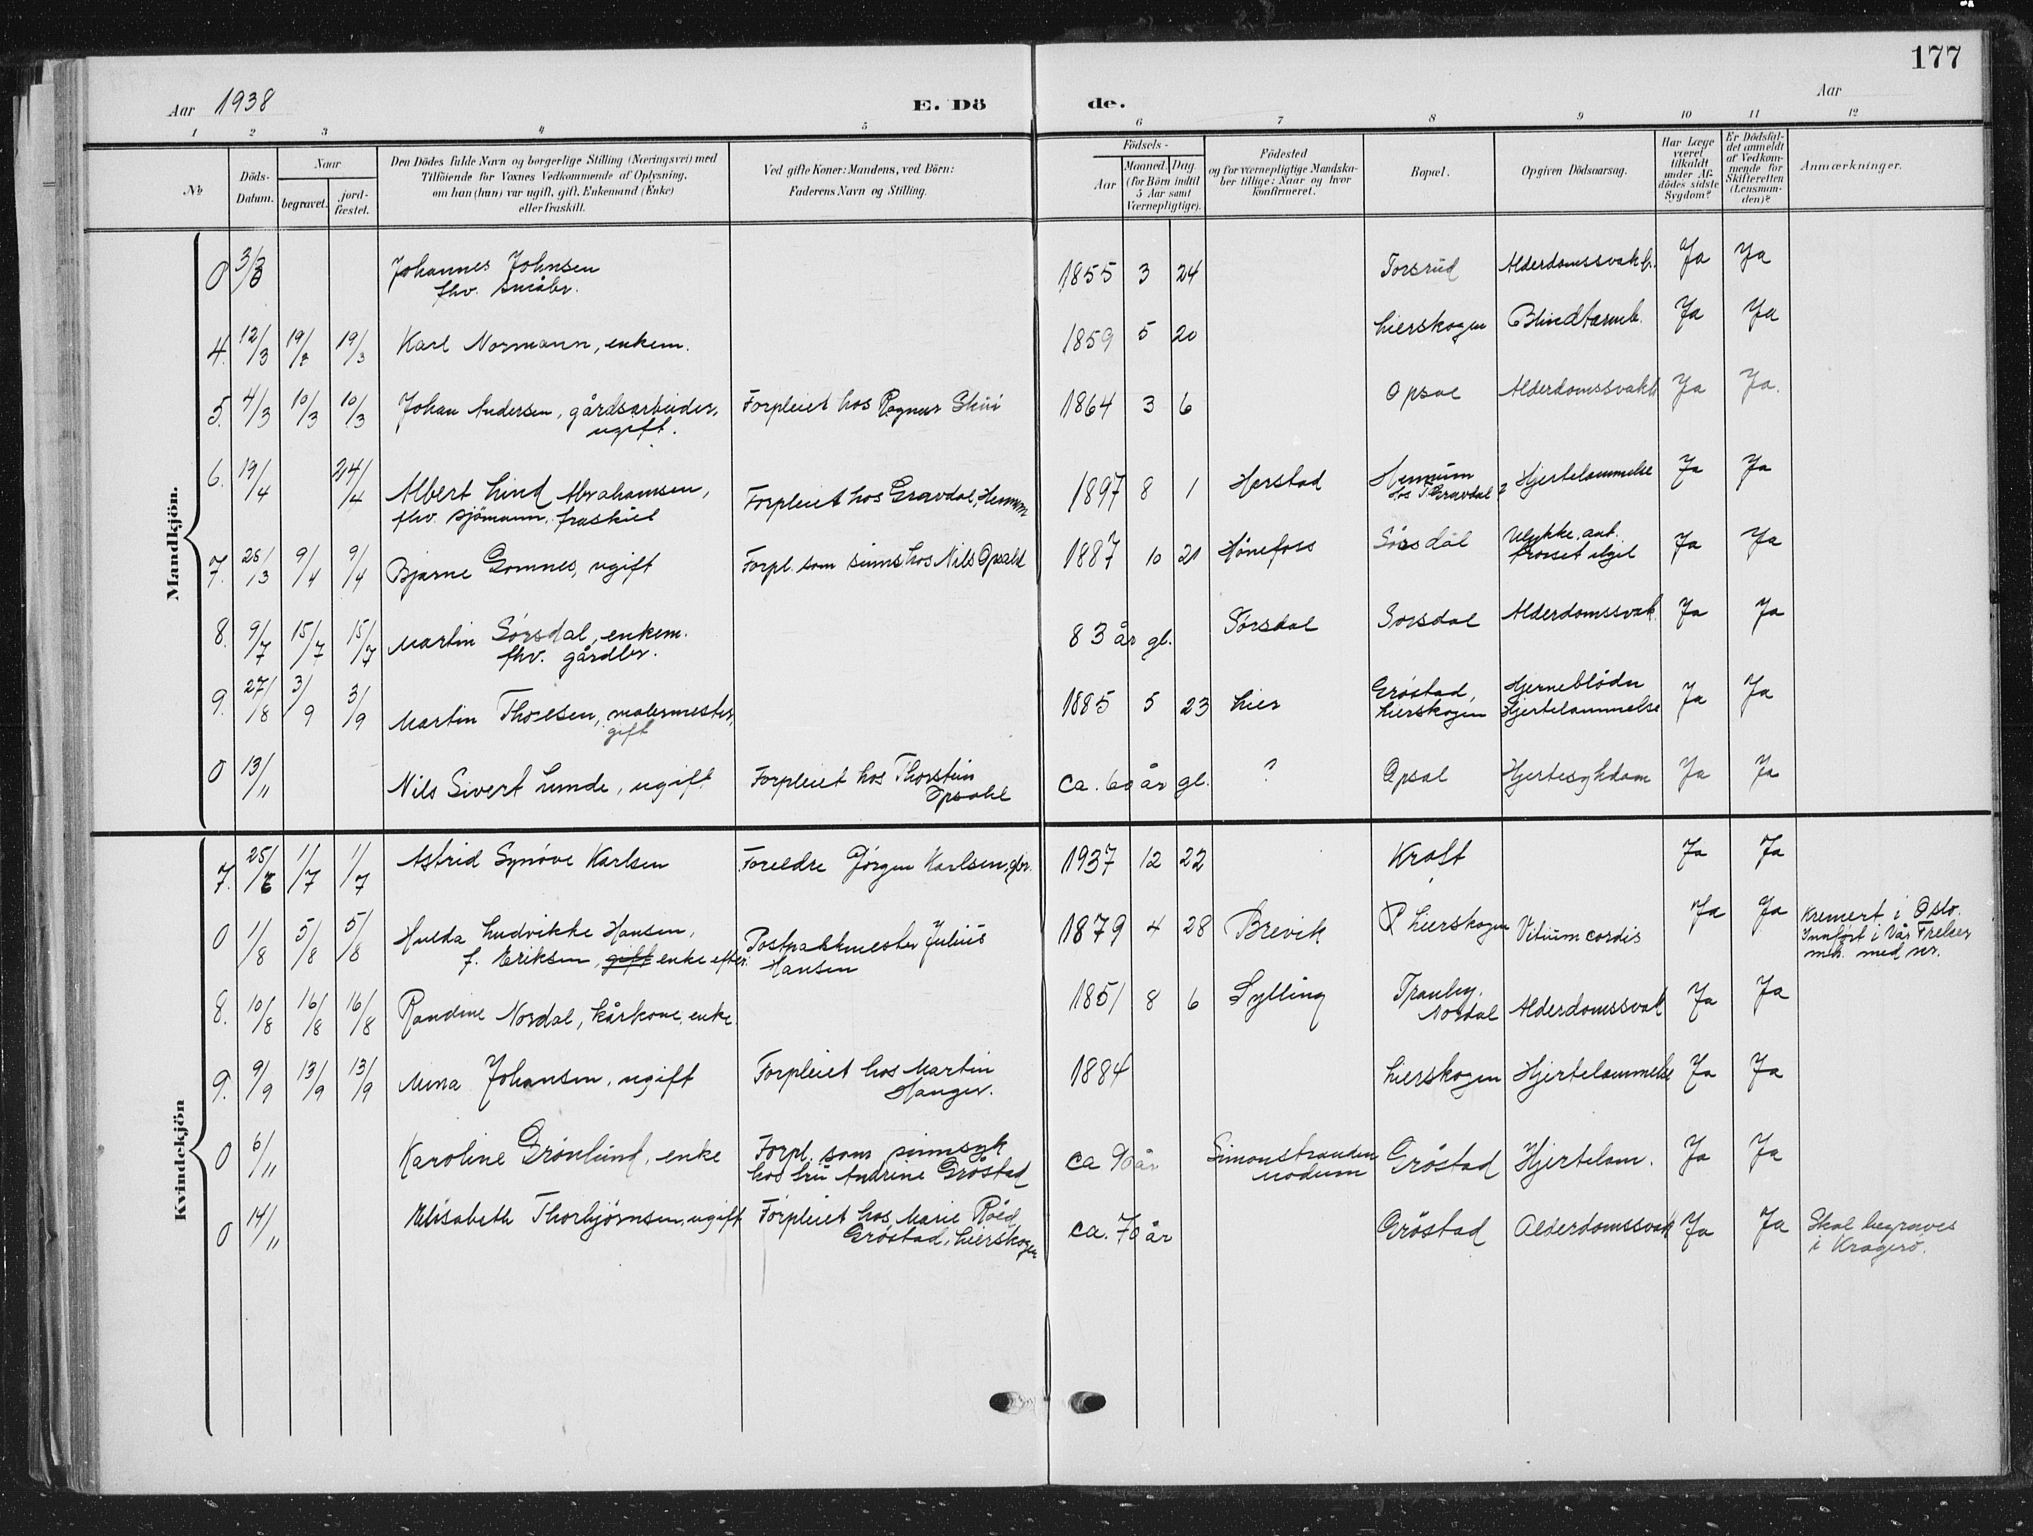 177
Aar 1938
E. Dö
de.
Aar
1 2 3 4 5 6 7 8 9 10 11 12
No
Döds-Datum.
Naar
begravet.
jord-fæstet.
Den Dödes fulde Navn og borgerlige Stilling (Næringsvei) med
Tilföiende for Voxnes Vedkommende af Oplysning,
om han (hun) var ugift, gift, Enkemand (Enke)
eller fraskilt.
Ved gifte Koner: Mandens, ved Börn:
Faderens Navn og Stilling.
Födsels-
Aar
Maaned. Dag.
(for Börn indtil
5 Aar samt
Værnepligtige).
Födested
og for værnepligtige Mandskaber tillige: Naar og hvor
konfirmeret.
Bopæl.
Opgiven Dödsaarsag.
Har Læge
været
tilkaldt
under Afdödes sidste
Sygdom?
Er Dödsfaldet anmeldt
af Vedkommende for
Skifteretten
(Lensmanden)?
Anmærkninger.
Mandkjön.
0 3/3 Johannes Johnsen 1855 3 24 Torsrud Alderdomssvakh. Ja Ja
fhv. småbr.
4. 12/3 19/3 19/3 Karl Normann, enkem. 1859 5 20 Lierskogen Blindtarmb. Ja Ja
5. 4/3 10/3 10/3 Johan Andersen, gårdsarbeider, Forpleiet hos Ragnar Skui 1864 3 6 Opsal Alderdomssvakh Ja Ja.
ugift.
6. 19/4 24/4 Albert Lind Abrahamsen, Forpleiet hos Gravdal, Hennum 1897 8 1 Harstad Hennum Hjertelammelse Ja Ja
fhv. sjömann, fraskilt hos T Gravdal
7. 26/3 9/4 9/4 Bjarne Gomnes, ugift Forpl. som sinns hos Nils Opsahl 1887 10 21 Hönefoss Sörsdal Ulykke, ant. Ja Ja
frosset ihjel
8. 9/7 15/7 15/7 Martin Sörsdal, enkem. 83 år gl. Sörsdal Sörsdal Alderdomssvak. Ja Ja
fhv. gårdbr.
9. 27/8 3/9 3/9 Martin Thoresen, malermester, 1885 5 23 Lier Gröstad, Hjerneblödn Ja Ja
gift Lierskogen Hjertelammelse
0 13/11 Nils Sivert Lunde, ugift Forpleiet hos Thorstein ca. 60 år gl. ? Opsal Hjertesykdom Ja Ja
Opsahl
Kvindekjön
7. 25/6 1/7 1/7 Astrid Synöve Karlsen Foreldre Jörgen Karlsen, gbr. 1937 12 22 Kraft Ja Ja
0 1/8 5/8 5/8 Hulda Ludvikke Hansen, Postpakkmester Julius 1879 4 28 Brevik P. Lierskogen Vitium cordis Ja Ja Kremert i Oslo.
f. Eriksen, gift enke efter Hansen Innfört i Vår Frelser
mh. med nr.
8. 10/8 16/8 16/8 Randine Nordal, kårkone, enke. 1851 8 6 Sylling Tranby, Alderdomssvak Ja Ja
Nordal
9. 9/9 13/9 13/9 Anna Johansen, ugift Forpleiet hos Martin 1884 Lierskogen Hjertelammelse Ja Ja
Hanger.
0 6/11 Karoline Grönlund, enke Forpl. som sinnsyk ca 90 år Simonstranden Gröstad Hjertelam. Ja Ja
hos fru Andrine Gröstad Modum
0 14/11 Elisabeth Thorbjörnsen, ugift Forpleiet hos Marie Röed ca. 70 år Gröstad Alderdomssvak Ja Ja Skal begraves
Gröstad, Lierskogen i Kragerö.